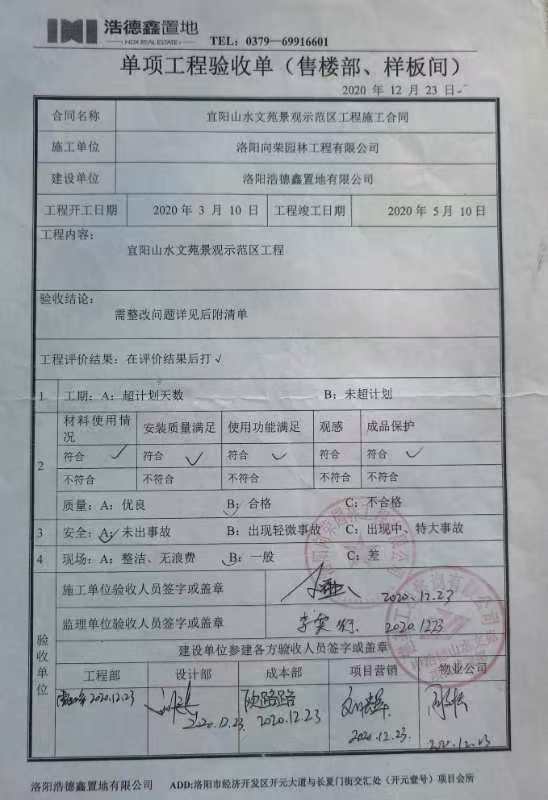 浩德鑫置地
HDX REAL ESTATE
TEL: 0379-69916601
单项工程验收单（售楼部、样板间）
2020 年 12 月 23 日
合同名称 宜阳山水文苑景观示范区工程施工合同
施工单位 洛阳向荣园林工程有限公司
建设单位 洛阳浩德鑫置地有限公司
工程开工日期 2020 年 3 月 10 日 工程竣工日期 2020 年 5 月 10 日
工程内容：
宜阳山水文苑景观示范区工程
验收结论：
需整改问题详见后附清单
工程评价结果：在评价结果后打√
1 工期：A：超计划天数 B：未超计划
2 材料使用情况 安装质量满足 使用功能满足 观感 成品保护
符合 ✓ 符合 ✓ 符合 ✓ 符合 符合 ✓
不符合 不符合 不符合 不符合 不符合
质量：A：优良 B：合格 C：不合格
3 安全：A：未出事故 B：出现轻微事故 C：出现中、特大事故
4 现场：A：整洁、无浪费 B：一般 C：差
验收单位
施工单位验收人员签字或盖章 2020.12.23
监理单位验收人员签字或盖章 2020.12.23
建设单位参建各方验收人员签字或盖章
工程部 设计部 成本部 项目营销 物业公司
2020.12.23 2020.12.23 欧路路 2020.12.23 2020.12.23 2020.12.23
洛阳浩德鑫置地有限公司 ADD:洛阳市经济开发区开元大道与长夏门街交汇处（开元壹号）项目会所